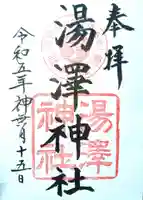 奉拝
湯澤神社
令和五年神無月十五日
湯澤
神社